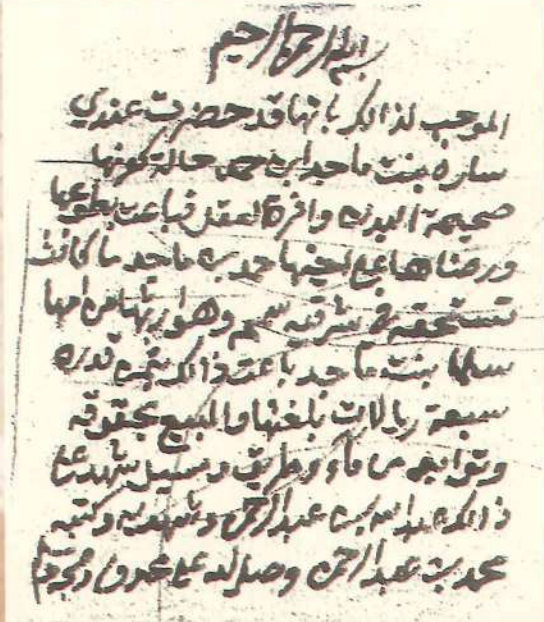 بسم الله الرحمن الرحيم
الموجب لذالك بانها قد حضرت عندي
ساره بنت ماجد ابن حمى حالة كونها
صحيحة البدن وافرة العقل فباعت بطوعها
ورضاها على اخيها حمد بن ماجد ما كانت
تستحقه في شرقيه وهو ارثها من امها
سلما بنت ماجد باعت ذالك بثمن قدره
سبعة ريالات بلغتها والمبيع بحقوقه
وتوابعه من ماء وطريق ومسيل شهد على
ذالك عبدالله بن عبدالرحمن وشهد به وكتبه
محمد بن عبدالرحمن وصلى الله على محمد